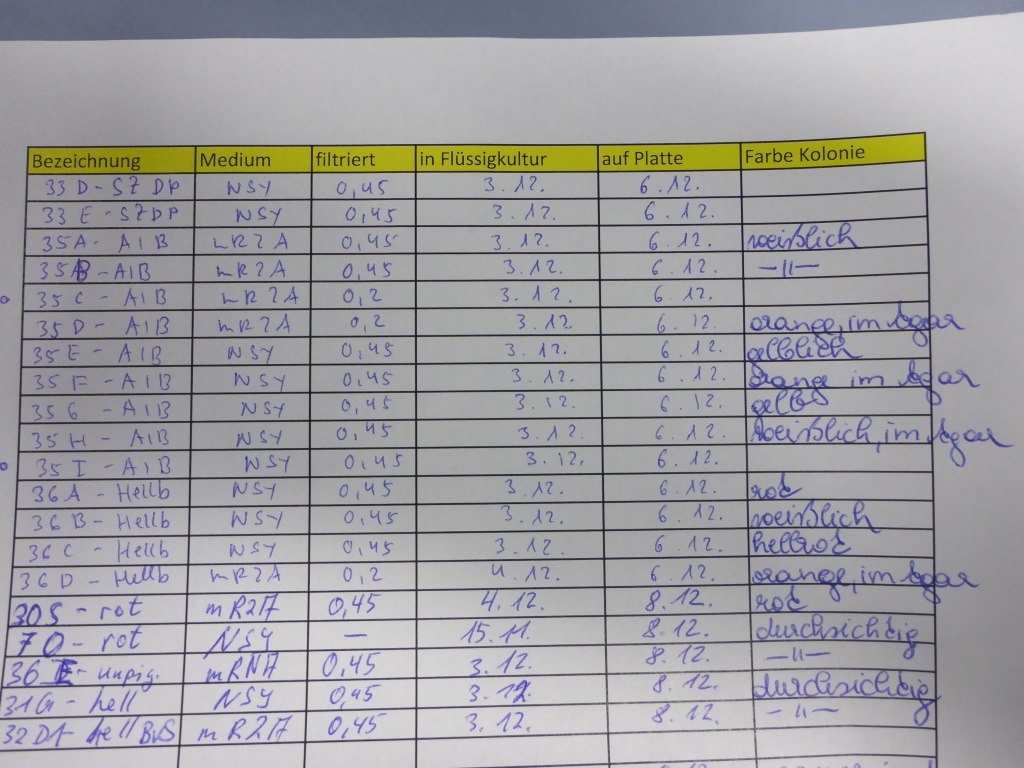 Bezeichnung Medium filtriert in Flüssigkultur auf Platte Farbe Kolonie
33 D - SZ DP NSY 0,45 3.12. 6.12.
33 E - SZDP NSY 0,45 3.12. 6.12.
35A - AIB mR2A 0,45 3.12. 6.12. weißlich
35B - AIB mR2A 0,45 3.12. 6.12. —11—
35 C - AIB mR2A 0,2 3.12. 6.12.
35 D - AIB mR2A 0,2 3.12. 6.12. orange, im Agar
35 E - AIB NSY 0,45 3.12. 6.12. gelblich
35 F - AIB NSY 0,45 3.12. 6.12. orange im Agar
35 G - AIB NSY 0,45 3.12. 6.12. gelb
35 H - AIB NSY 0,45 3.12. 6.12. weißlich, im Agar
35 I - AIB NSY 0,45 3.12. 6.12.
36A - Hellb NSY 0,45 3.12. 6.12. rot
36 B - Hellb NSY 0,45 3.12. 6.12. weißlich
36 C - Hellb NSY 0,45 3.12. 6.12. hellrot
36 D - Hellb mR2A 0,2 4.12. 6.12. orange, im Agar
30S - rot mR2A 0,45 4.12. 8.12. rot
7O - rot NSY — 15.11. 8.12. durchsichtig
36 E - unpig. mRNA 0,45 3.12. 8.12. —11—
31G - hell NSY 0,45 3.12. 8.12. durchsichtig
32 D1 hell BvS mR2A 0,45 3.12. 8.12. —11—